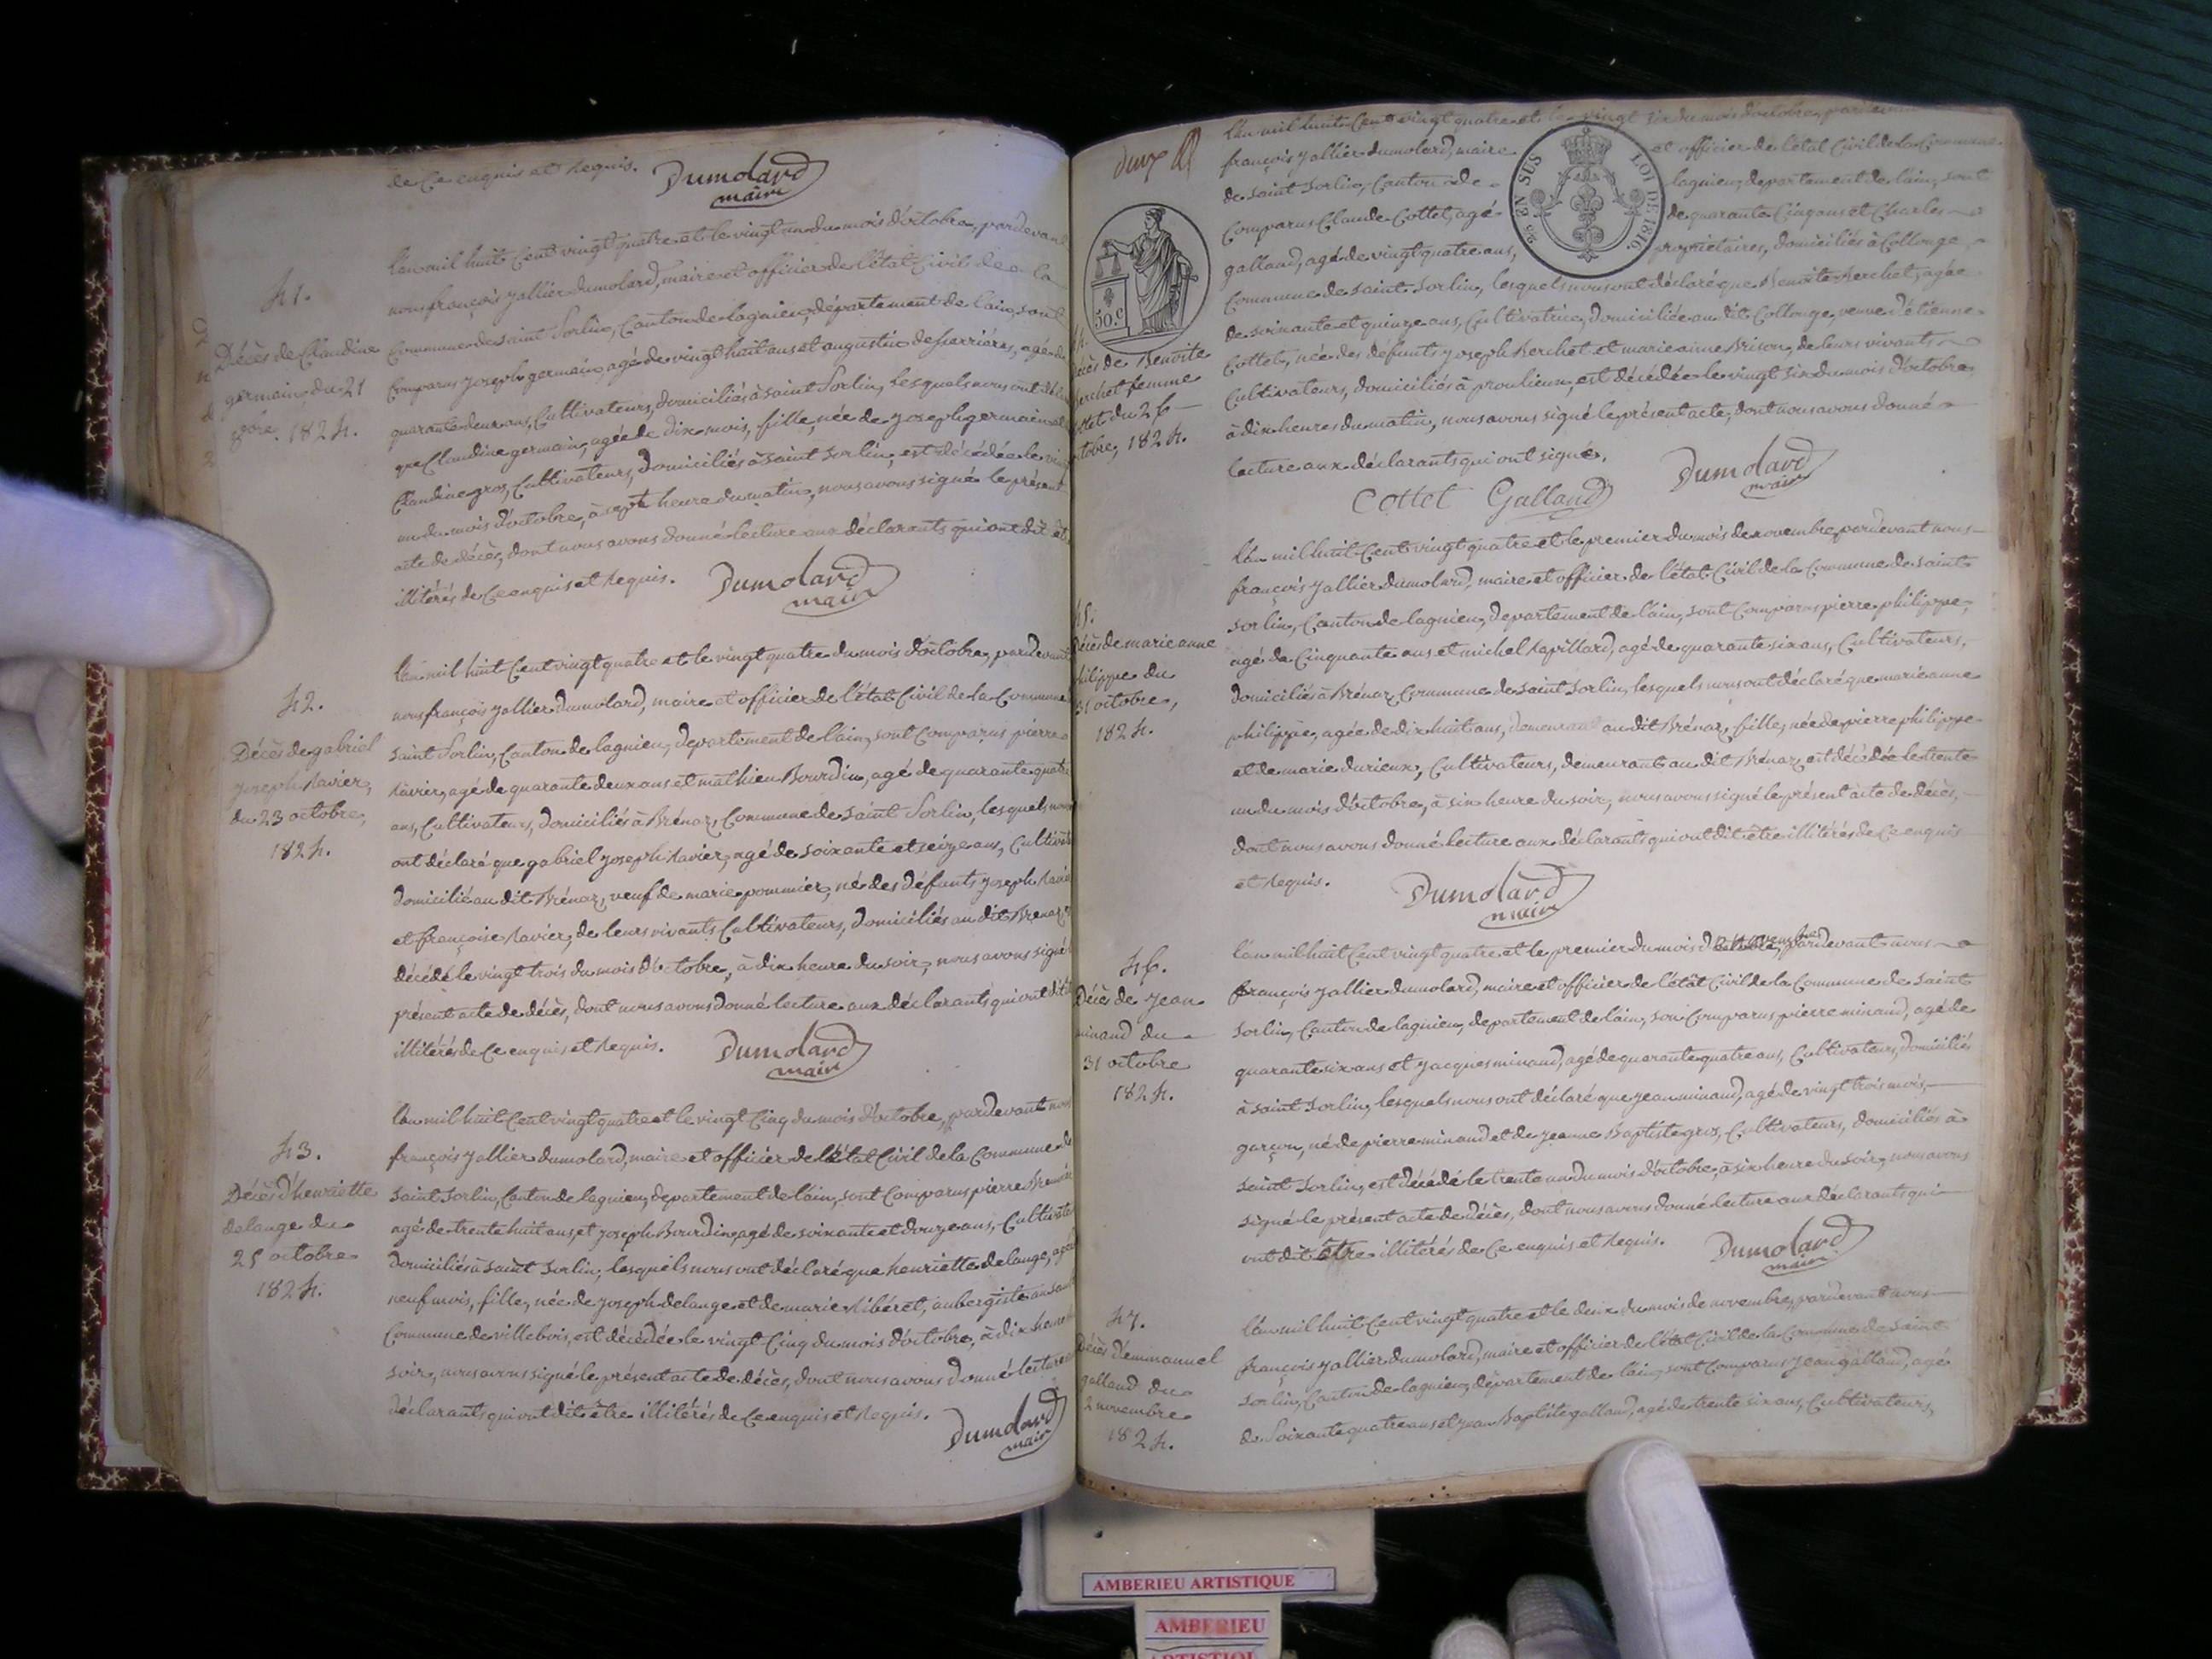 de ce enquis et requis. Dumolard
maire
41.
Décès de Claudine
germain, du 21
8bre. 1824.
L'an mil huit cent vingt quatre et le vingt un du mois d'octobre, pardevant
nous françois jallier dumolard, maire et officier de l'état civil de la
Commune de saint Sorlin, Canton de lagnieu, département de l'ain, sont
comparus joseph germain, agé de vingt huit ans et augustin deferrières, agé de
quarante deux ans, Cultivateurs, domiciliés à saint Sorlin, lesquels nous ont
que Claudine germain, agée de dix mois, fille, née de joseph germain et
Claudine gros, Cultivateurs, domiciliés à saint Sorlin, est décédée le vingt
un du mois d'octobre, à sept heure du matin, nous avons signé le présent
acte de décès, dont nous avons donné lecture aux déclarants qui ont dit
illitérés de ce enquis et requis. Dumolard
maire
42.
Décès de gabriel
joseph Ravier,
du 23 octobre,
1824.
L'an mil huit cent vingt quatre et le vingt quatre du mois d'octobre, pardevant
nous françois jallier dumolard, maire et officier de l'état Civil de la Commune
saint Sorlin, Canton de lagnieu, département de l'ain, sont comparus pierre
Ravier, agé de quarante deux ans et mathieu Bourdin, agé de quarante quatre
ans, Cultivateurs, domiciliés à Brénaz, Commune de saint Sorlin, lesquels nous
ont déclaré que gabriel joseph Ravier, agé de soixante et seize ans,
domicilié au dit Brénaz, veuf de marie pommier, né des défunts joseph Ravier
et françoise Ravier, de leurs vivants Cultivateurs, domiciliés au dit Brénaz,
décédé le vingt trois du mois d'octobre, à dix heure du soir, nous avons signé
présent acte de décès, dont nous avons donné lecture aux déclarants qui ont dit
illitérés de ce enquis et requis. Dumolard
maire
43.
Décès d'henriette
delange du
25 octobre
1824.
L'an mil huit cent vingt quatre et le vingt cinq du mois d'octobre, pardevant nous
françois jallier dumolard, maire et officier de l'état Civil de la Commune de
saint Sorlin, Canton de lagnieu, département de l'ain, sont comparus pierre
agé de trente huit ans, et joseph Bourdin, agé de soixante et douze ans,
domiciliés à saint Sorlin, lesquels nous ont déclaré que henriette delange, agée
neuf mois, fille, née de joseph delange et de marie Ribéret, aubergiste au
Commune de villebois, est décédée le vingt cinq du mois d'octobre, à dix heure
soir, nous avons signé le présent acte de décès, dont nous avons donné lecture
déclarants qui ont dit être illitérés de ce enquis et requis.
Dumolard
maire
EN SUS
LOI DE 1816.
50.c
44.
Décès de Benoite
Berchet femme
Cottet du 26
octobre, 1824.
L'an mil huit cent vingt quatre et le vingt six du mois d'octobre, pardevant
françois jallier dumolard, maire et officier de l'état Civil de la Commune
de saint Sorlin, Canton de lagnieu, département de l'ain, sont
comparus Claude Cottet, agé de quarante cinq ans et Charles
galland, agé de vingt quatre ans, propriétaires, domiciliés à Collonge
Commune de saint Sorlin, lesquels nous ont déclaré que Benoite Berchet, agée
de soixante et quinze ans, Cultivatrice, domiciliée au dit Collonge, veuve d'étienne
Cottet, née des défunts joseph Berchet et marie aimé Brison, de leurs vivants
Cultivateurs, domiciliés à proulieu, est décédée le vingt six du mois d'octobre
à dix heures du matin, nous avons signé le présent acte, dont nous avons donné
lecture aux déclarants qui ont signé.
Cottet Galland Dumolard
maire
45.
Décès de marie anne
philippe du
31 octobre,
1824.
L'an mil huit cent vingt quatre et le premier du mois de novembre, pardevant nous
françois jallier dumolard, maire et officier de l'état Civil de la Commune de saint
Sorlin, Canton de lagnieu, département de l'ain, sont comparus pierre philippe,
agé de cinquante ans et michel Rapillard, agé de quarante six ans, Cultivateurs,
domiciliés à Brénaz, Commune de saint Sorlin, lesquels nous ont déclaré que marie anne
philippe, agée de dix huit ans, demeurant au dit Brénaz, fille, née de pierre philippe
et de marie durieux, Cultivateurs, demeurant au dit Brénaz, est décédée le trente
un du mois d'octobre, à six heure du soir, nous avons signé le présent acte de décès,
dont nous avons donné lecture aux déclarants qui ont dit être illitérés de ce enquis
et requis. Dumolard
maire
46.
Décès de jean
minand du
31 octobre
1824.
L'an mil huit cent vingt quatre et le premier du mois de novembre, pardevant nous
françois jallier dumolard, maire et officier de l'état Civil de la Commune de saint
Sorlin, Canton de lagnieu, département de l'ain, son comparus pierre minand, agé de
quarante six ans et jacques minand, agé de quarante quatre ans, Cultivateurs, domiciliés
à saint Sorlin, lesquels nous ont déclaré que jean minand, agé de vingt trois mois,
garçon, né de pierre minand et de jeanne Baptiste gros, Cultivateurs, domiciliés à
saint Sorlin, est décédé le trente un du mois d'octobre, à six heure du soir, nous avons
signé le présent acte de décès, dont nous avons donné lecture aux déclarants qui
ont dit être illitérés de ce enquis et requis. Dumolard
maire
47.
Décès d'emmanuel
galland du
2 novembre
1824.
L'an mil huit cent vingt quatre et le deux du mois de novembre, pardevant nous
françois jallier dumolard, maire et officier de l'état Civil de la Commune de saint
Sorlin, Canton de lagnieu, département de l'ain, sont comparus jean galland, agé
de soixante quatre ans et jean Baptiste galland, agé de trente six ans, Cultivateurs,
AMBERIEU ARTISTIQUE
AMBERIEU
ARTISTIQUE